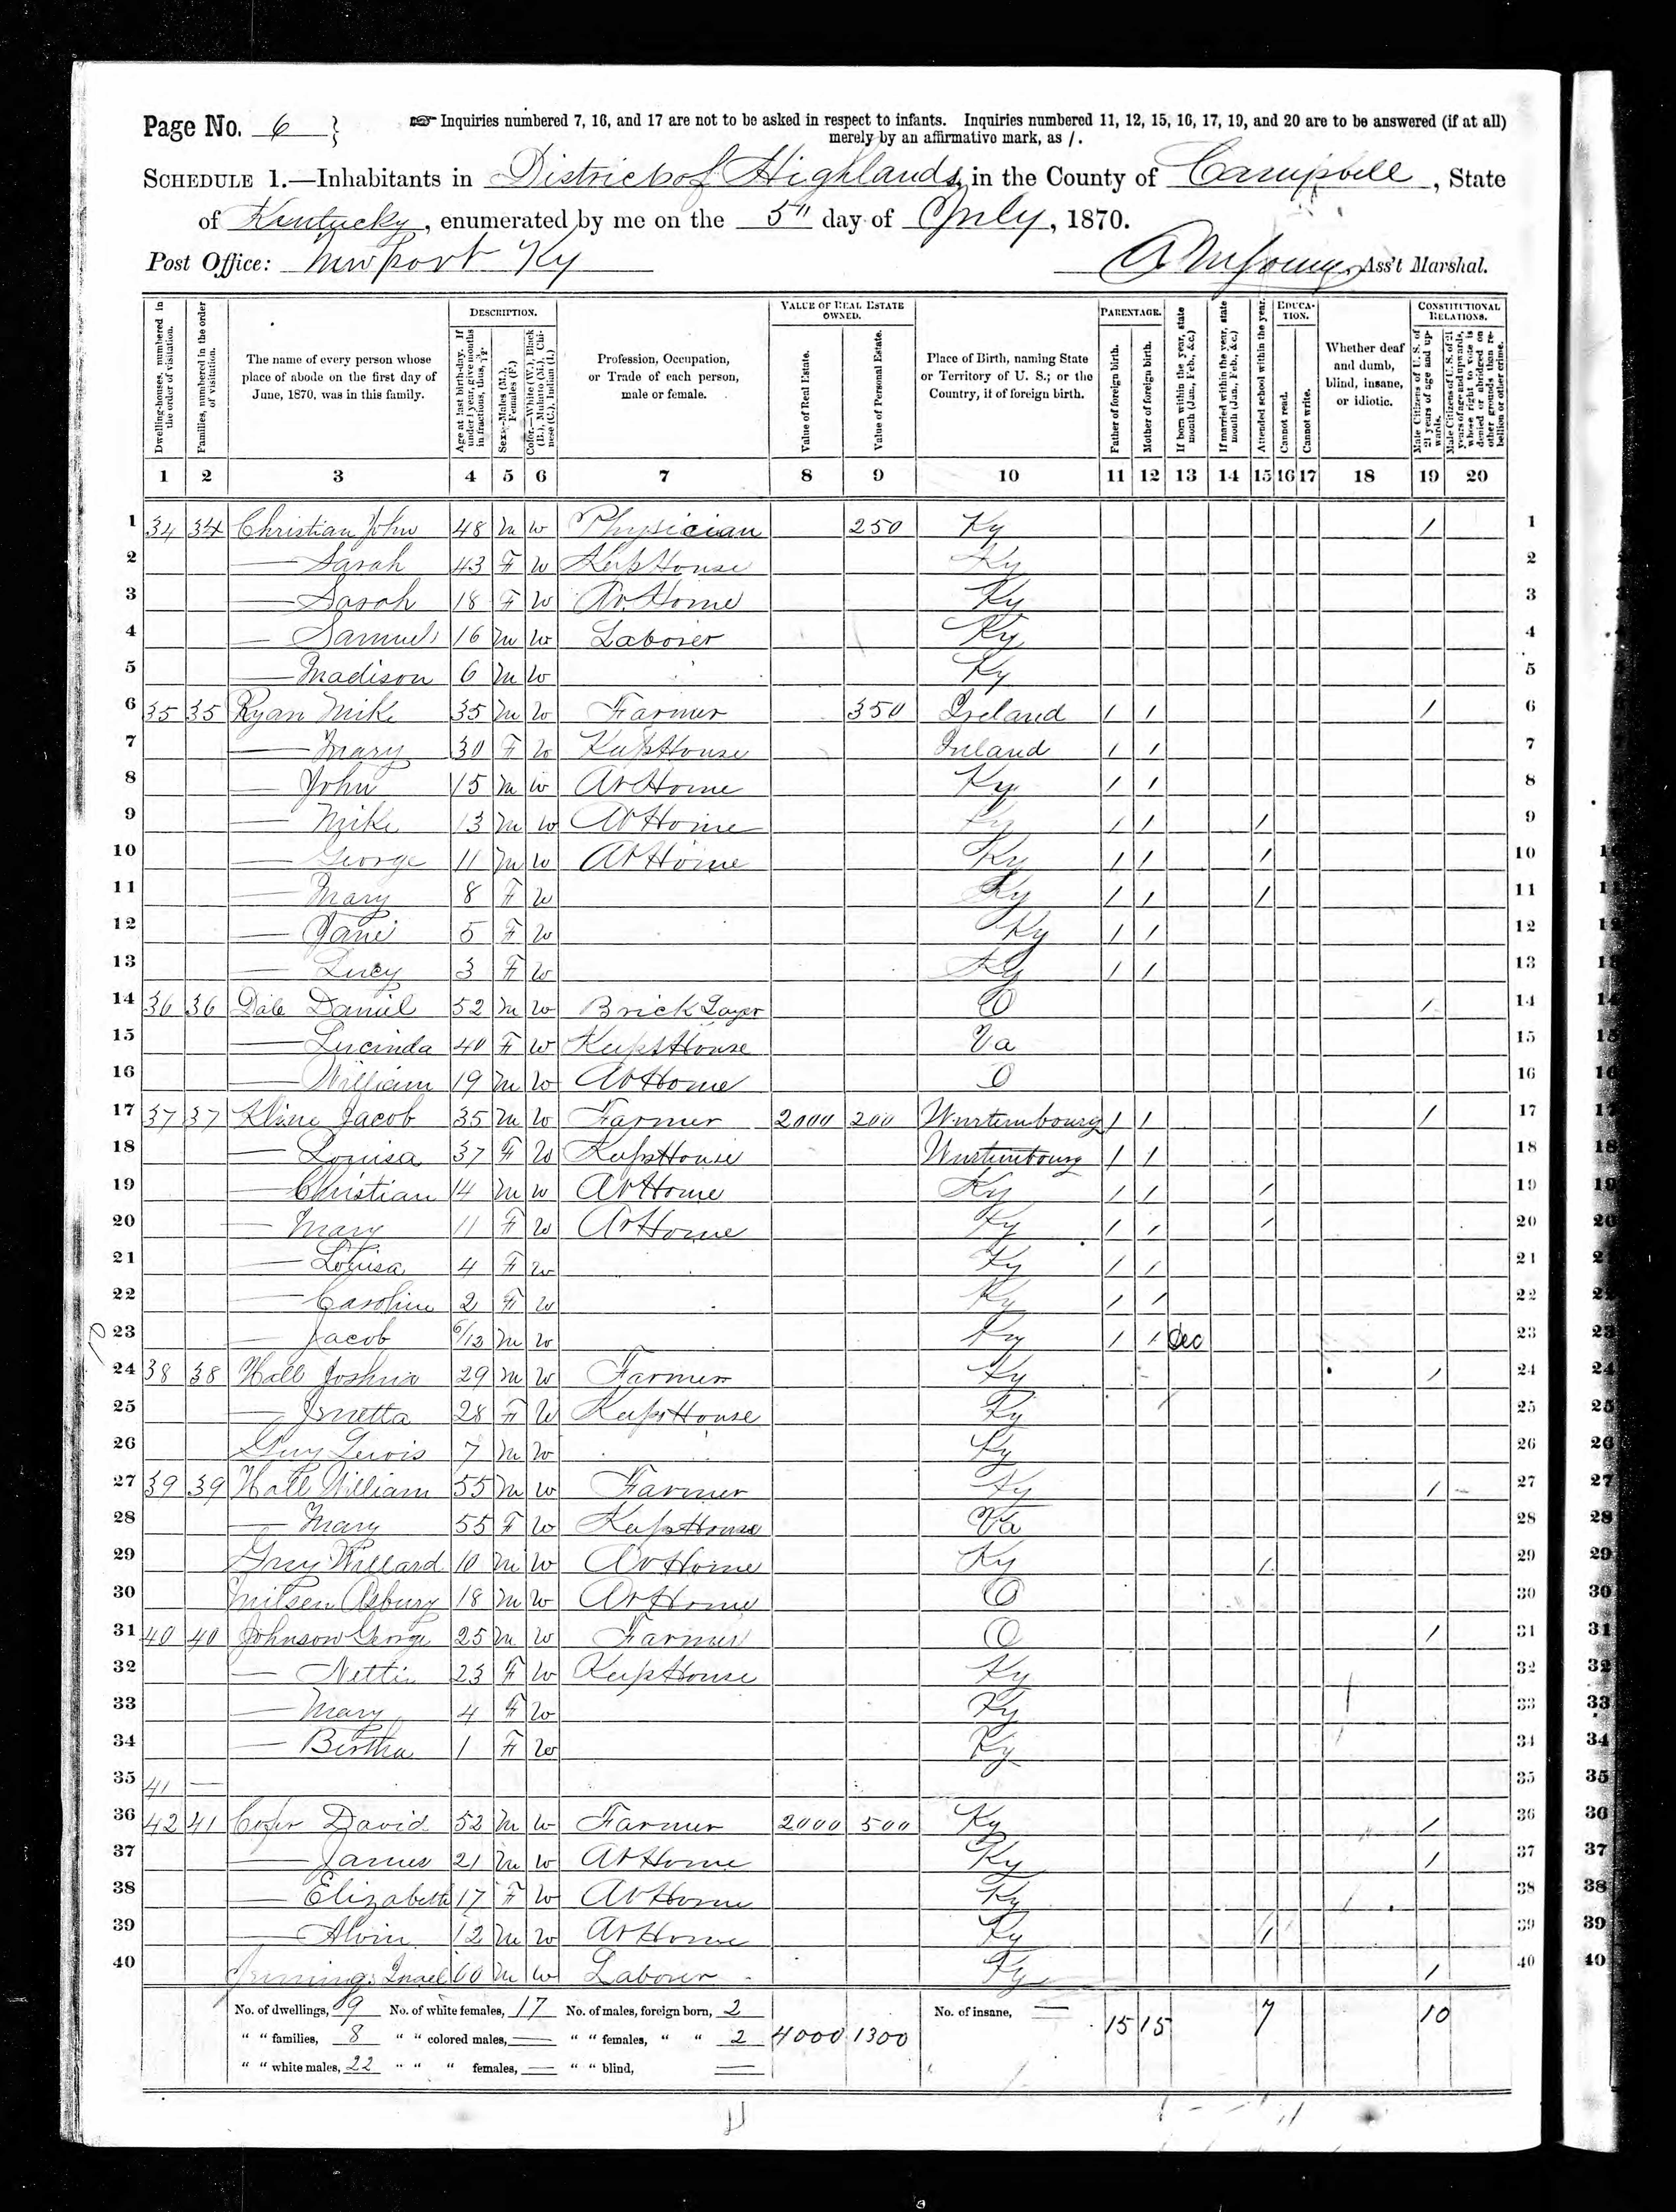 Page No. 6 } ☞ Inquiries numbered 7, 16, and 17 are not to be asked in respect to infants. Inquiries numbered 11, 12, 15, 16, 17, 19, and 20 are to be answered (if at all)
merely by an affirmative mark, as /.
SCHEDULE 1.—Inhabitants in District of Highlands, in the County of Campbell, State
of Kentucky, enumerated by me on the 5" day of July, 1870.
Post Office: Newport Ky Ass't Marshal.
Dwelling-houses, numbered in the order of visitation.
Families, numbered in the order of visitation.
The name of every person whose place of abode on the first day of June, 1870, was in this family.
DESCRIPTION.
Age at last birth-day. If under 1 year, give months in fractions, thus, 3/12.
Sex.—Males (M.), Females (F.)
Color.—White (W.), Black (B.), Mulatto (M.), Chinese (C.), Indian (I.)
Profession, Occupation, or Trade of each person, male or female.
VALUE OF REAL ESTATE OWNED.
Value of Real Estate.
Value of Personal Estate.
Place of Birth, naming State or Territory of U. S.; or the Country, if of foreign birth.
PARENTAGE.
Father of foreign birth.
Mother of foreign birth.
If born within the year, state month (Jan., Feb., &c.)
If married within the year, state month (Jan., Feb., &c.)
Attended school within the year.
EDUCATION.
Cannot read.
Cannot write.
Whether deaf and dumb, blind, insane, or idiotic.
CONSTITUTIONAL RELATIONS.
Male Citizens of U. S. of 21 years of age and upwards.
Male Citizens of U. S. of 21 years of age and upwards, whose right to vote is denied or abridged on other grounds than rebellion or other crime.
1 2 3 4 5 6 7 8 9 10 11 12 13 14 15 16 17 18 19 20
1 34 34 Christian John 48 M W Physician 250 Ky / 1
2 — Sarah 43 F W Keeps House Ky 2
3 — Sarah 18 F W At Home Ky 3
4 — Samuel 16 M W Laborer Ky 4
5 — Madison 6 M W Ky 5
6 35 35 Ryan Mike 35 M W Farmer 350 Ireland / / / 6
7 — Mary 30 F W Keeps House Ireland / / 7
8 — John 15 M W At Home Ky / / 8
9 — Mike 13 M W At Home Ky / / / 9
10 — George 11 M W At Home Ky / / / 10
11 — Mary 8 F W Ky / / / 11
12 — Jane 5 F W Ky / / 12
13 — Lucy 3 F W Ky / / 13
14 36 36 Dale Daniel 52 M W Brick Layer O / 14
15 — Lucinda 40 F W Keeps House Va 15
16 — William 19 M W At Home O 16
17 37 37 Kline Jacob 35 M W Farmer 2000 200 Wurtembourg / / / 17
18 — Louisa 37 F W Keeps House Wurtembourg / / 18
19 — Christian 14 M W At Home Ky / / / 19
20 — Mary 11 F W At Home Ky / / / 20
21 — Louisa 4 F W Ky / / 21
22 — Caroline 2 F W Ky / / 22
23 — Jacob 6/12 M W Ky / / Dec 23
24 38 38 Hall Joshua 29 M W Farmer Ky / 24
25 — 28 F W Keeps House Ky 25
26 Guy Lewis 7 M W Ky 26
27 39 39 Hall William 55 M W Farmer Ky / 27
28 — Mary 55 F W Keeps House Va 28
29 Guy Willard 10 M W At Home Ky / 29
30 Asbury 18 M W At Home O 30
31 40 40 Johnson George 25 M W Farmer O / 31
32 — Nettie 23 F W Keeps House Ky 32
33 — Mary 4 F W Ky 33
34 — Bertha 1 F W Ky 34
35 41 — 35
36 42 41 David 52 M W Farmer 2000 500 Ky / 36
37 — James 21 M W At Home Ky / 37
38 — Elizabeth 17 F W At Home Ky 38
39 — Alvin 12 M W At Home Ky / 39
40 Jennings Israel 60 M W Laborer Ky / 40
No. of dwellings, 9 No. of white females, 17 No. of males, foreign born, 2 No. of insane, —
" " families, 8 " " colored males, — " " females, " " 2 4000 1300 15 15 7 10
" " white males, 22 " " " females, — " " blind, —